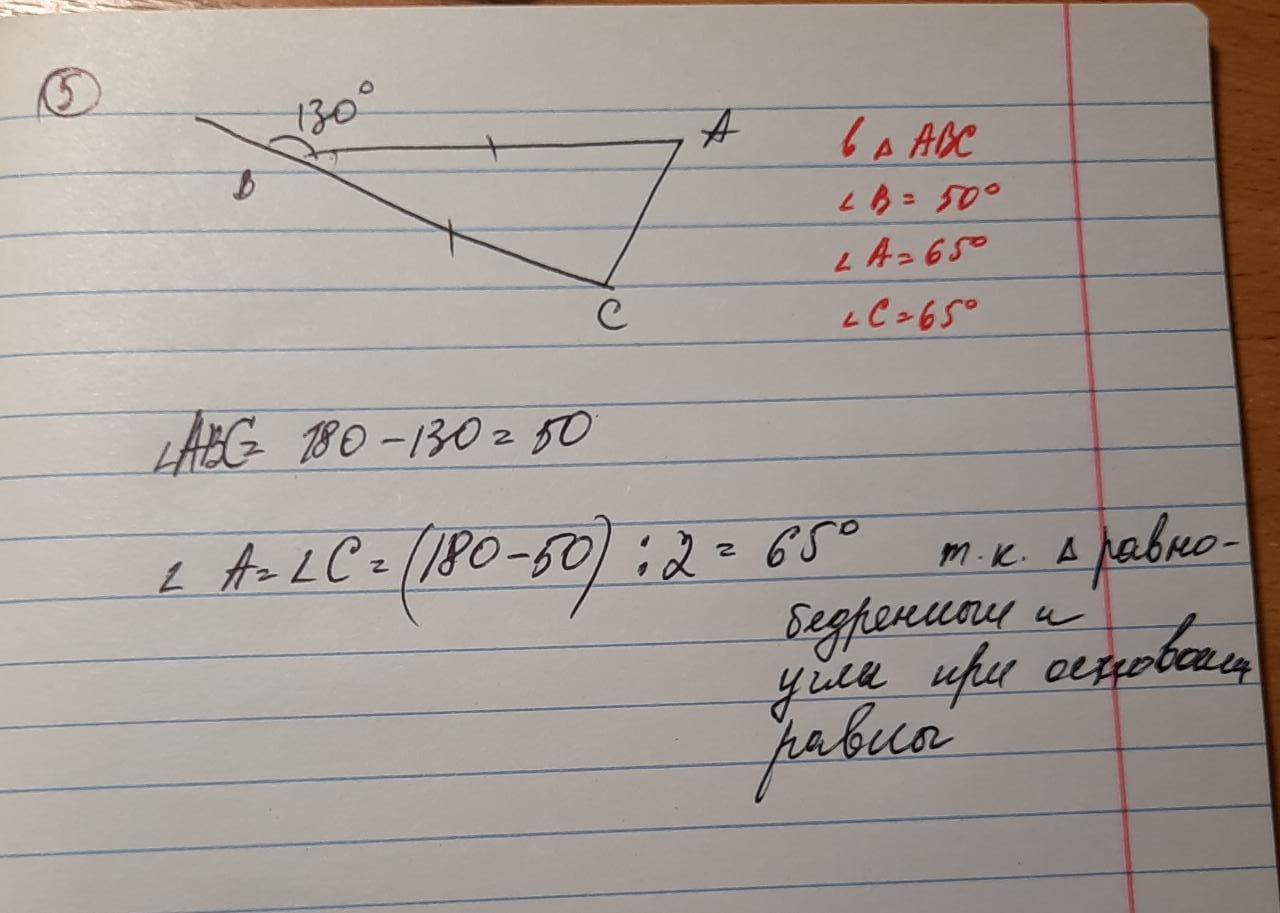 5
130°
A
B
C
в △ ABC
∠ B = 50°
∠ A = 65°
∠ C = 65°
∠ABC = 180 - 130 = 50
∠ A = ∠ C = (180 - 50) : 2 = 65° т.к. △ равно-
бедренный и
углы при основании
равны